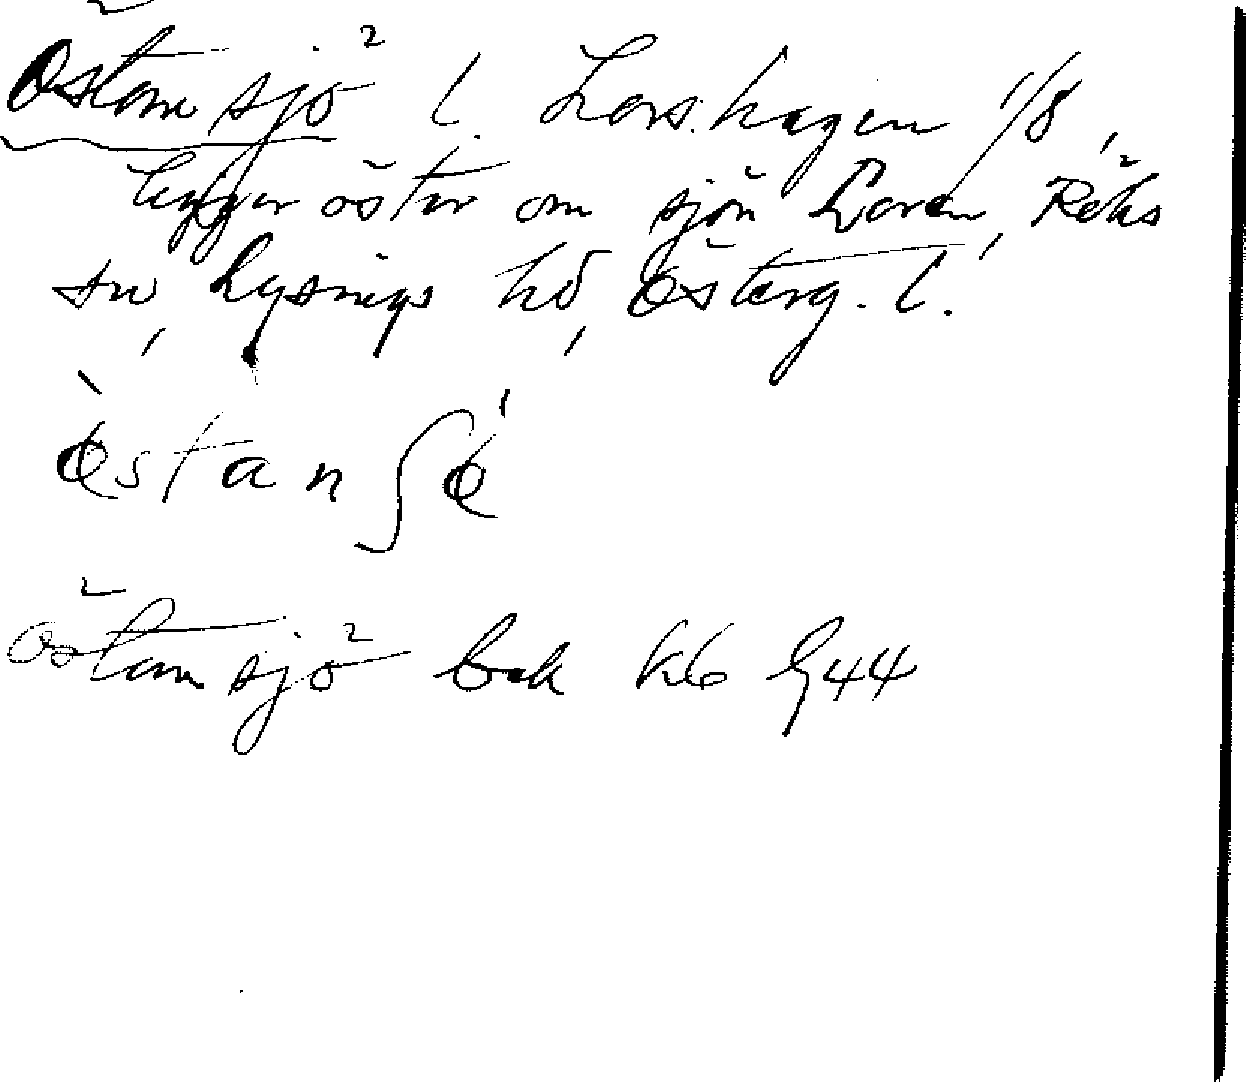 Östansjö l. Lars.hagen 1/8,
ligger öster om sjön Loren, Röks
sn, Lysings hd, Österg. l.
östanʃö
östansjö bok K6 G44